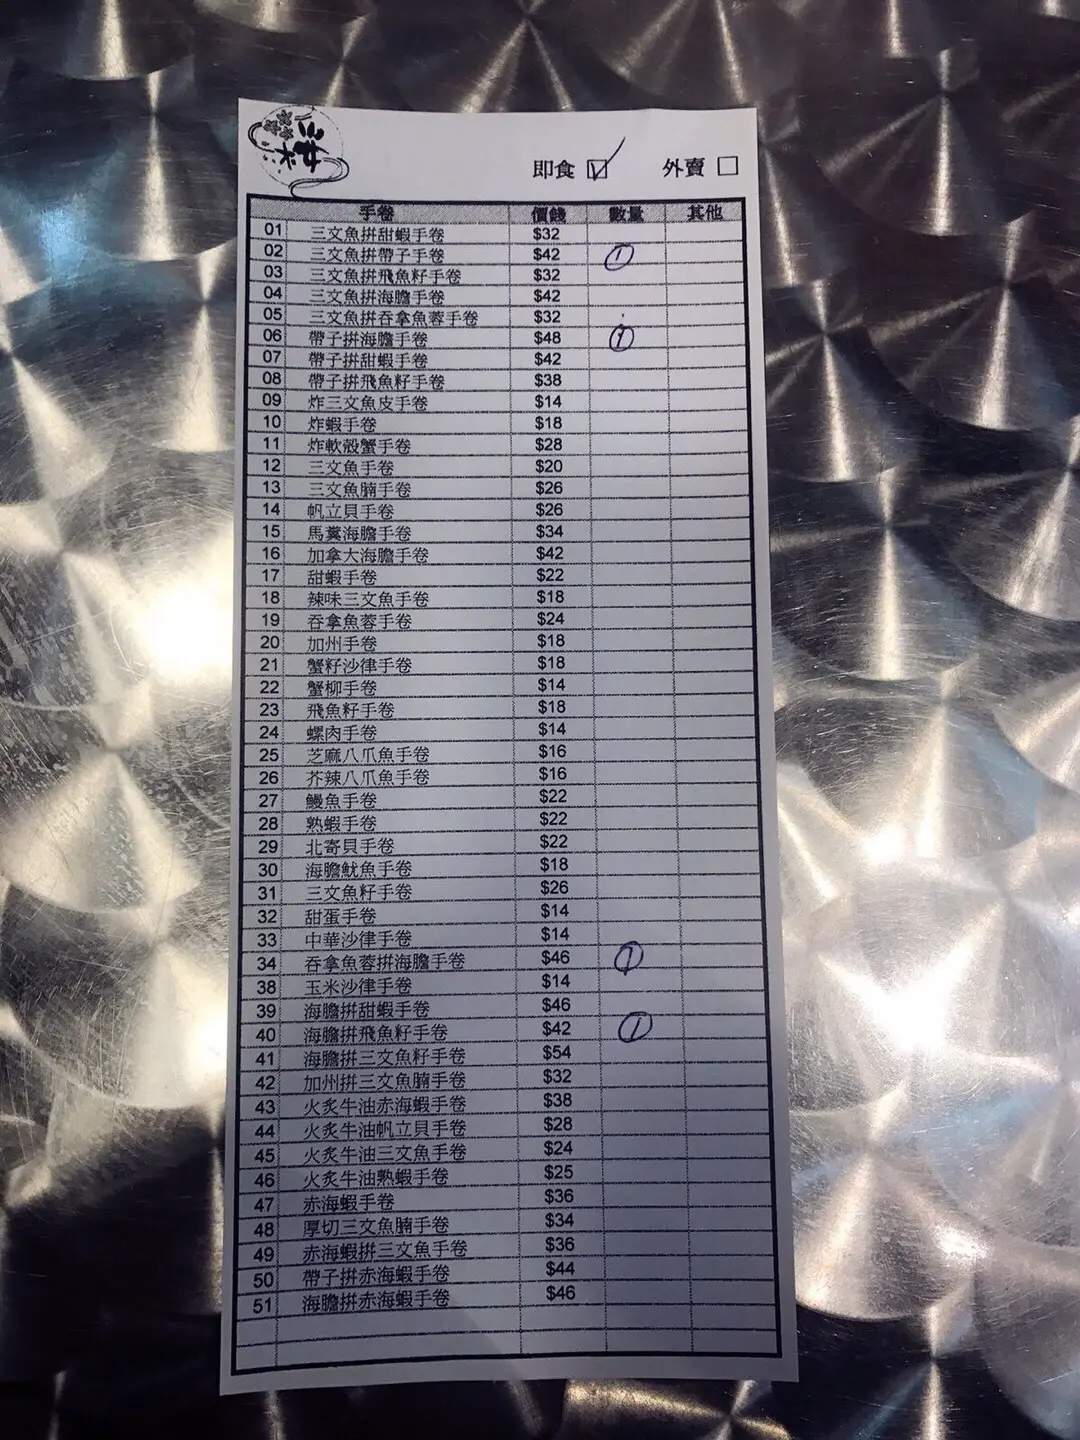 即食 ☑ 外賣 ☐
手卷 價錢 數量 其他
01 三文魚拼甜蝦手卷 $32
02 三文魚拼帶子手卷 $42 ①
03 三文魚拼飛魚籽手卷 $32
04 三文魚拼海膽手卷 $42
05 三文魚拼吞拿魚蓉手卷 $32
06 帶子拼海膽手卷 $48 ①
07 帶子拼甜蝦手卷 $42
08 帶子拼飛魚籽手卷 $38
09 炸三文魚皮手卷 $14
10 炸蝦手卷 $18
11 炸軟殼蟹手卷 $28
12 三文魚手卷 $20
13 三文魚腩手卷 $26
14 帆立貝手卷 $26
15 馬糞海膽手卷 $34
16 加拿大海膽手卷 $42
17 甜蝦手卷 $22
18 辣味三文魚手卷 $18
19 吞拿魚蓉手卷 $24
20 加州手卷 $18
21 蟹籽沙律手卷 $18
22 蟹柳手卷 $14
23 飛魚籽手卷 $18
24 螺肉手卷 $14
25 芝麻八爪魚手卷 $16
26 芥辣八爪魚手卷 $16
27 鰻魚手卷 $22
28 熟蝦手卷 $22
29 北寄貝手卷 $22
30 海膽魷魚手卷 $18
31 三文魚籽手卷 $26
32 甜蛋手卷 $14
33 中華沙律手卷 $14
34 吞拿魚蓉拼海膽手卷 $46 ①
38 玉米沙律手卷 $14
39 海膽拼甜蝦手卷 $46
40 海膽拼飛魚籽手卷 $42 ①
41 海膽拼三文魚籽手卷 $54
42 加州拼三文魚腩手卷 $32
43 火炙牛油赤海蝦手卷 $38
44 火炙牛油帆立貝手卷 $28
45 火炙牛油三文魚手卷 $24
46 火炙牛油熟蝦手卷 $25
47 赤海蝦手卷 $36
48 厚切三文魚腩手卷 $34
49 赤海蝦拼三文魚手卷 $36
50 帶子拼赤海蝦手卷 $44
51 海膽拼赤海蝦手卷 $46